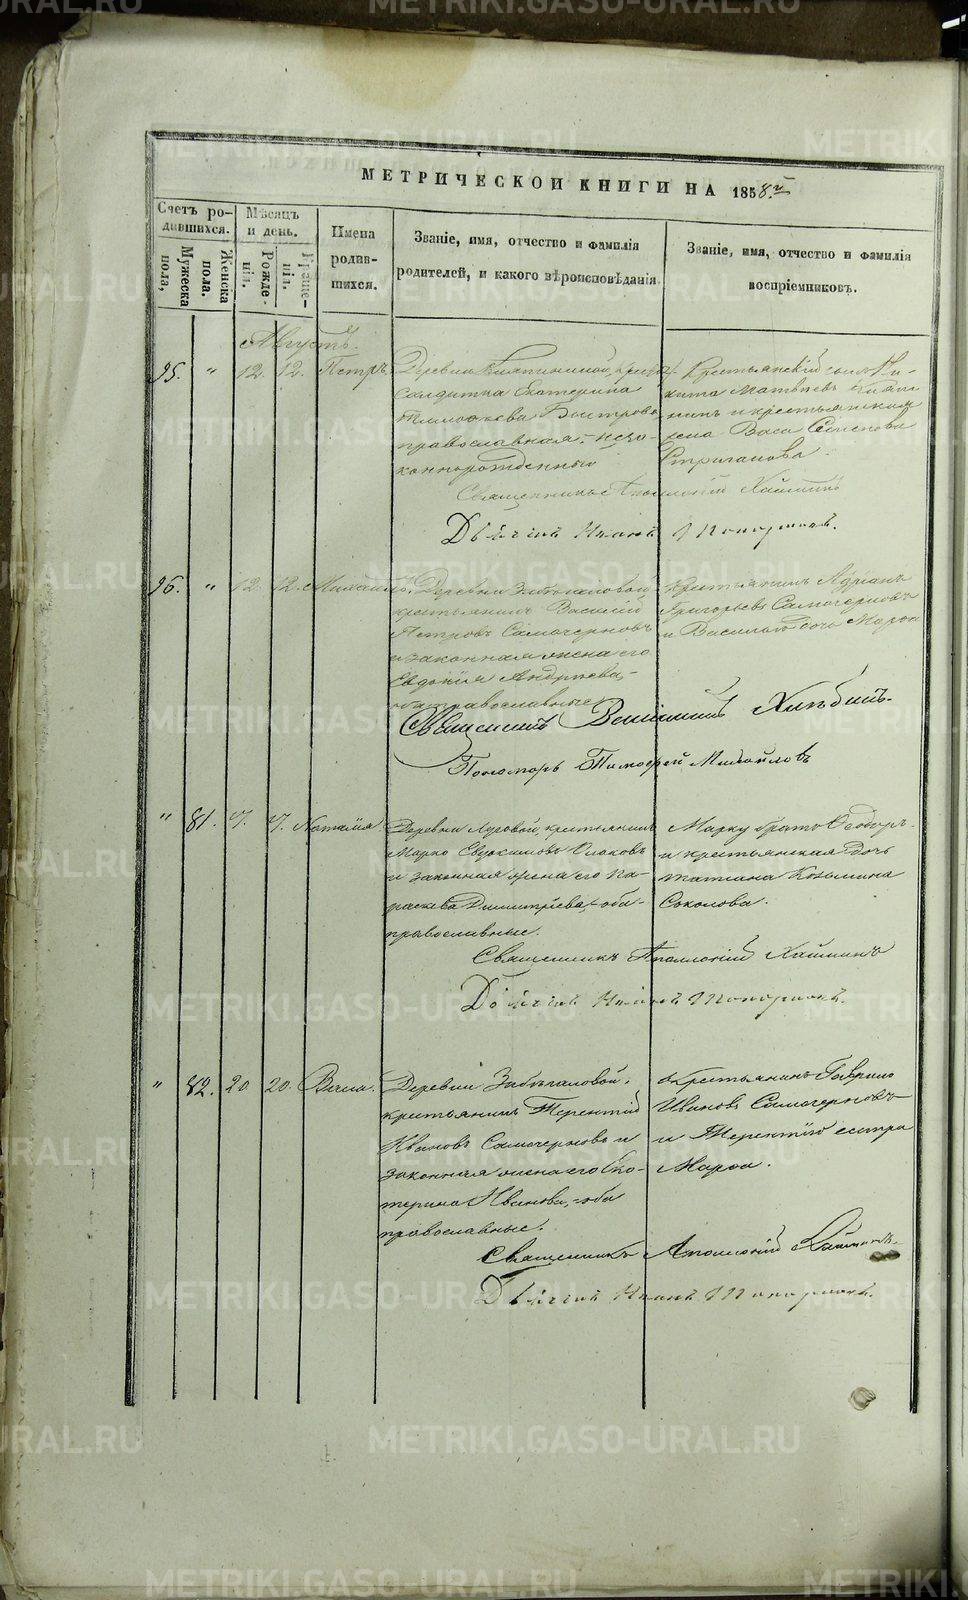 МЕТРИЧЕСКОЙ КНИГИ НА 1858 г.
Счетъ ро-
дившихся.
Мужеска
пола,
Женска
пола.
Мѣсяцъ
и день.
Рожде-
нія.
Креще-
нія.
Имена
родив-
шихся.
Званіе, имя, отчество и фамилія
родителей, и какого вѣроисповѣданія
Званіе, имя, отчество и фамилія
воспріемниковъ.
Августъ.
95. " 12. 12. Петръ.
Деревни
солдатка Екатерина
Тимофеева Быстрова
православная. - незо-
коннорожденный
Крестьянскій сынъ Ни-
кита Матвѣевъ
и крестьянская
жена Васа Семенова
Стриганова.
Священникъ Аполлоній Хаймин
Дьячий Иоанъ Пономаревъ.
96. " 12. 12. Михаилъ.
Деревни Забегаловой
крестьянинъ Василій
Петровъ Самочерновъ
и законная жена его
Евдокія Андреева, -
оба православные
Крестьянинъ Адріанъ
Григорьевъ Самочерновъ
и Василья дочь Марфа
Священникъ Веніаминъ Хлѣбинъ.
Пономарь Тимофей Михайловъ
" 81. 7. 7. Наталія.
Деревни Луговой, крестьянинъ
Марко
и законная жена его Па-
раскева Димитріева, - оба
православные.
Марку братъ Ѳеодоръ
и крестьянская дочь
Татіана Козьмина
Соколова.
Священникъ Аполлоній Хаймин
Дьячий Иоанъ Пономаревъ.
" 82. 20. 20. Васса.
Деревни Забегаловой.
крестьянинъ Терентій
Ивановъ Самочерновъ и
законная жена его Ека-
терина Иванова, - оба
православные.
Крестьянинъ Гавріилъ
Ивановъ Самочерновъ
и Терентію сестра
Марфа.
Священникъ Аполлоній Хаймин
Дьячий Иоанъ Пономаревъ.
METRIKI.GASO-URAL.RU